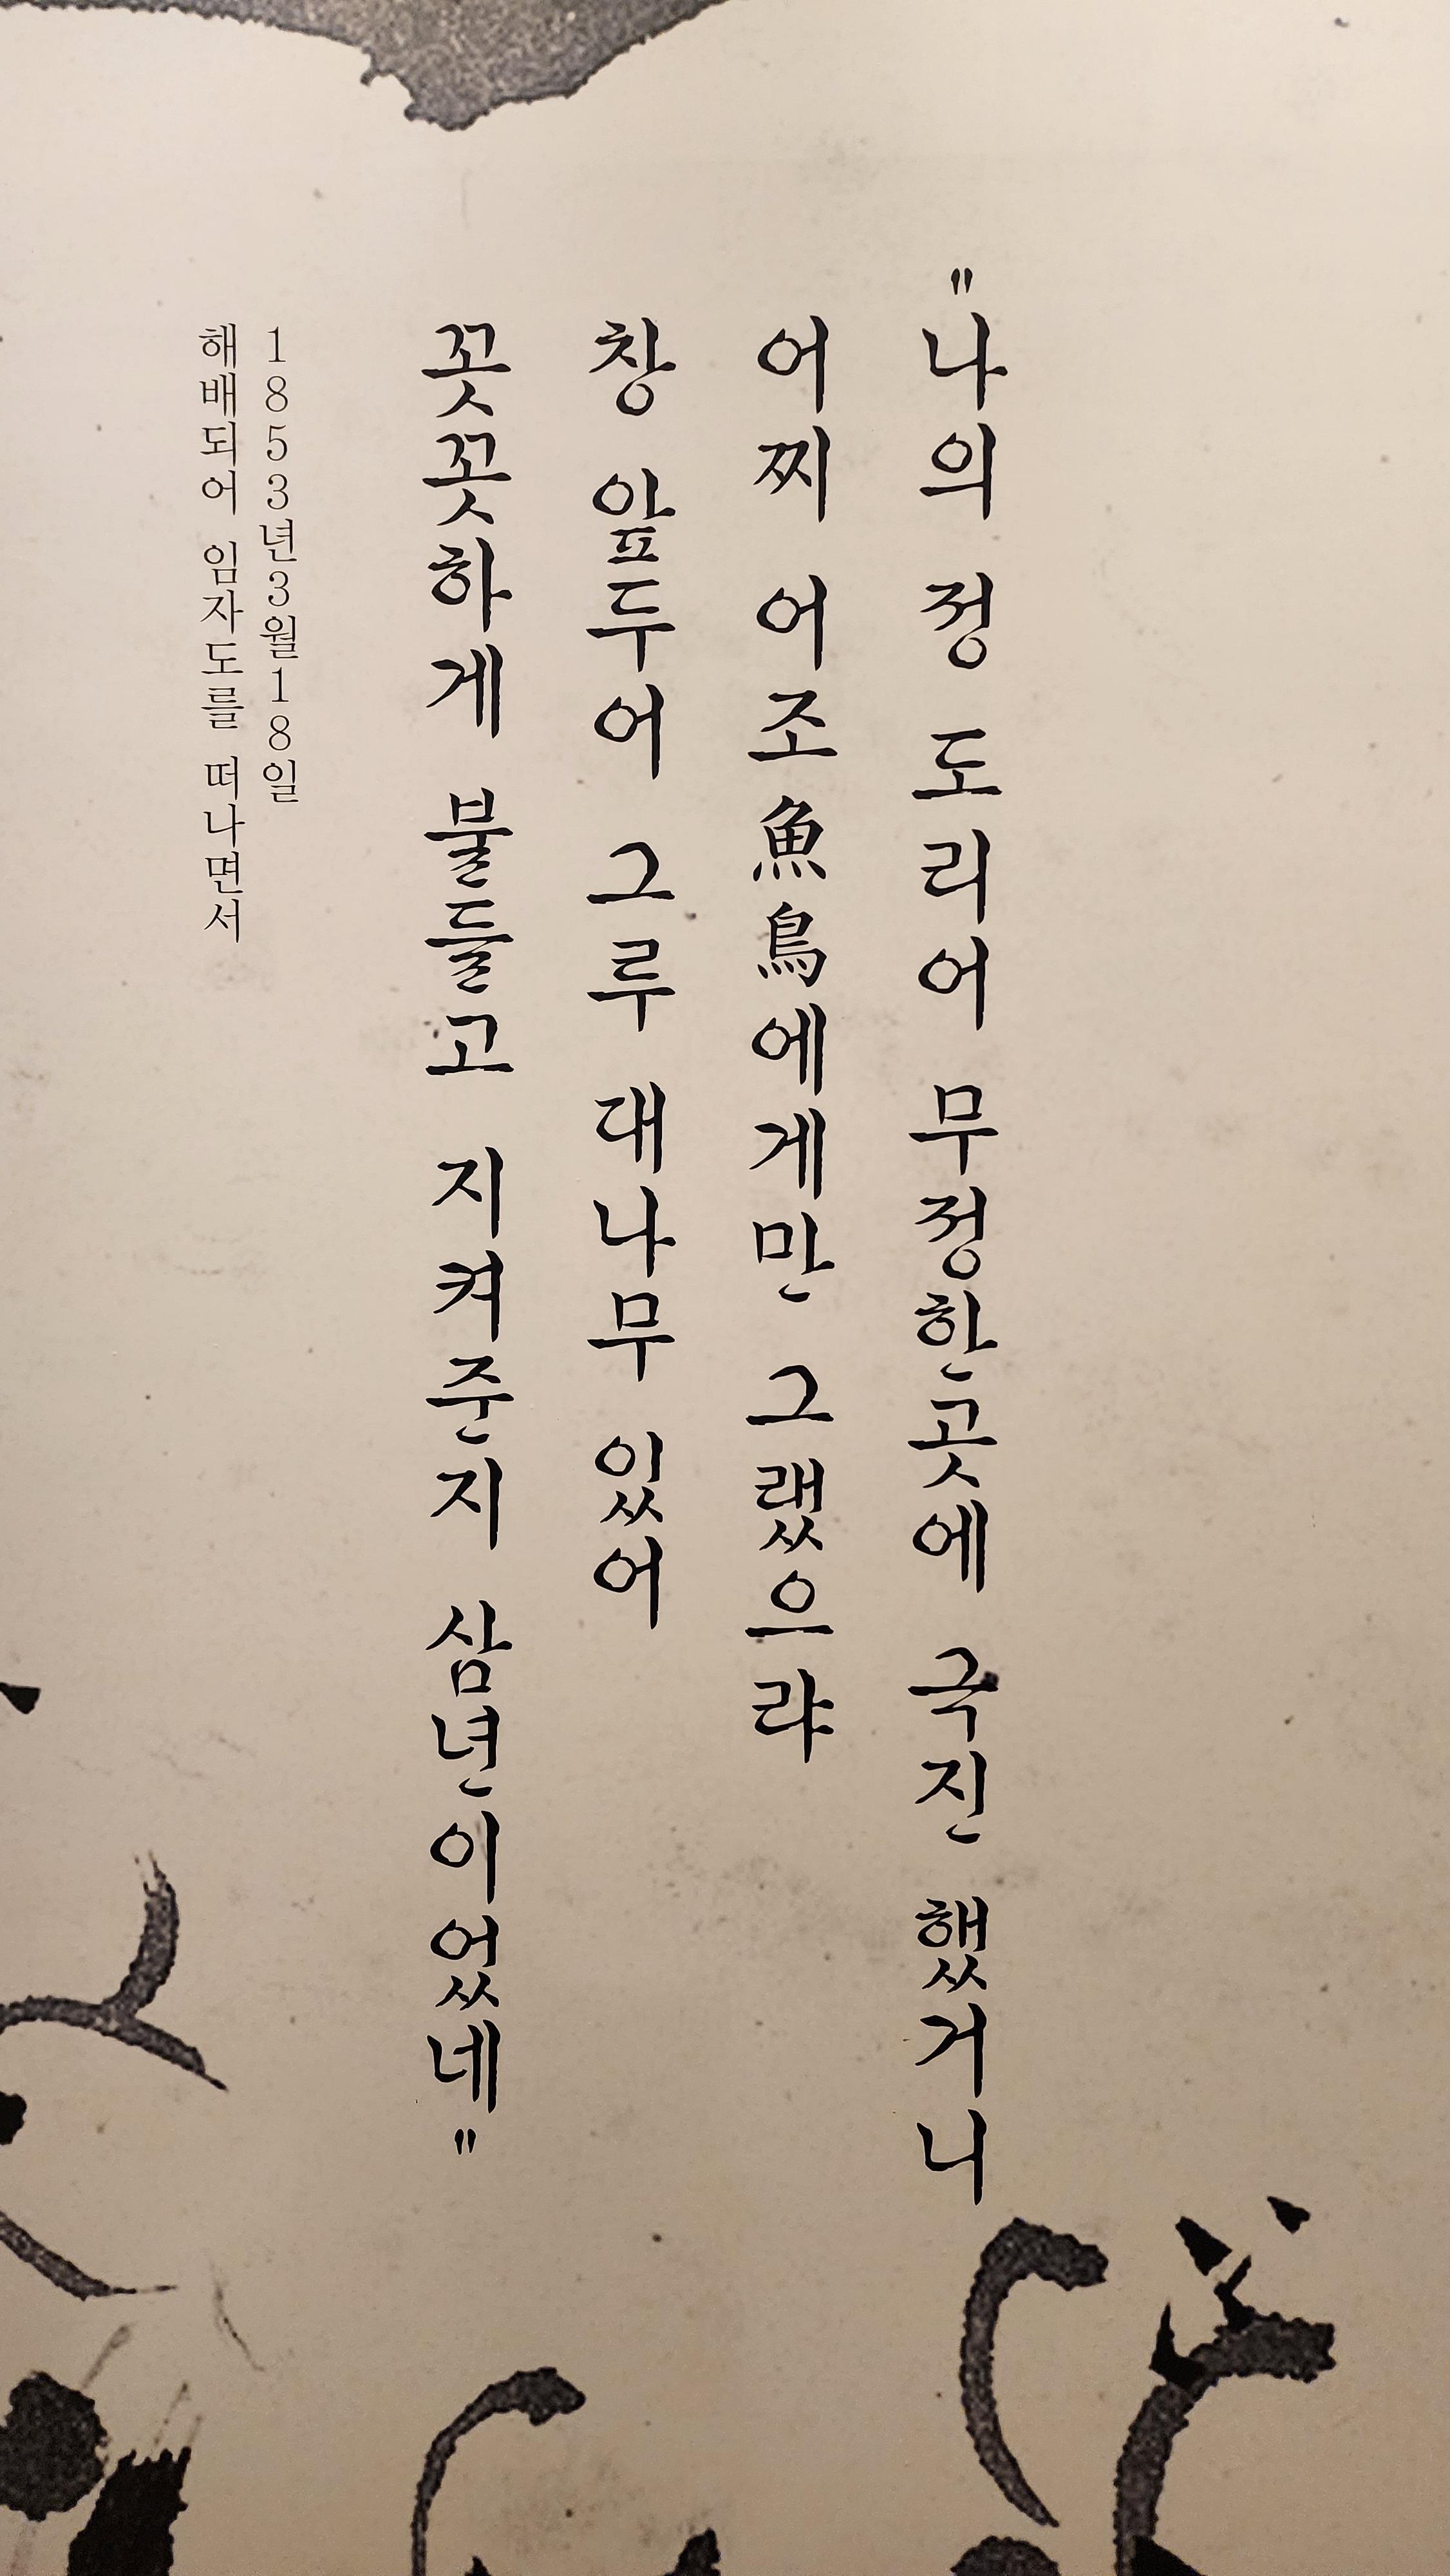 "나의 정 도리어 무정한곳에 극진 했거니
어찌 어조魚鳥에게만 그랬으랴
창 앞두어 그루 대나무 있어
꼿꼿하게 붙들고 지켜준지 삼년이었네"
1853년3월18일
해배되어 임자도를 떠나면서